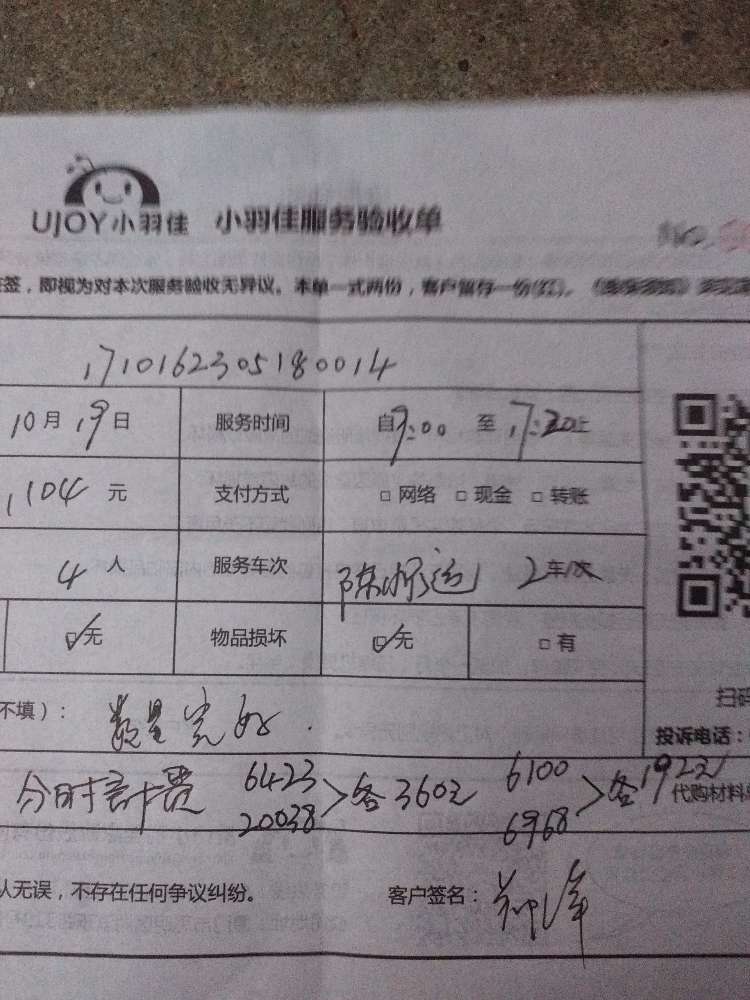 UJOY小羽佳 小羽佳服务验收单
签，即视为对本次服务验收无异议。本单一式两份，客户留存一份(红)。
1710162305180014
10月19日 服务时间 自9:00 至17:20止
1,104元 支付方式 □网络 □现金 □转账
4人 服务车次 2车/次
☑无 物品损坏 ☑无 □有
扫码
不填）： 数量完好.
投诉电话：
分时计费 6423 20038>各360元 6100 6968>各192元
代购材料
认无误，不存在任何争议纠纷。 客户签名：